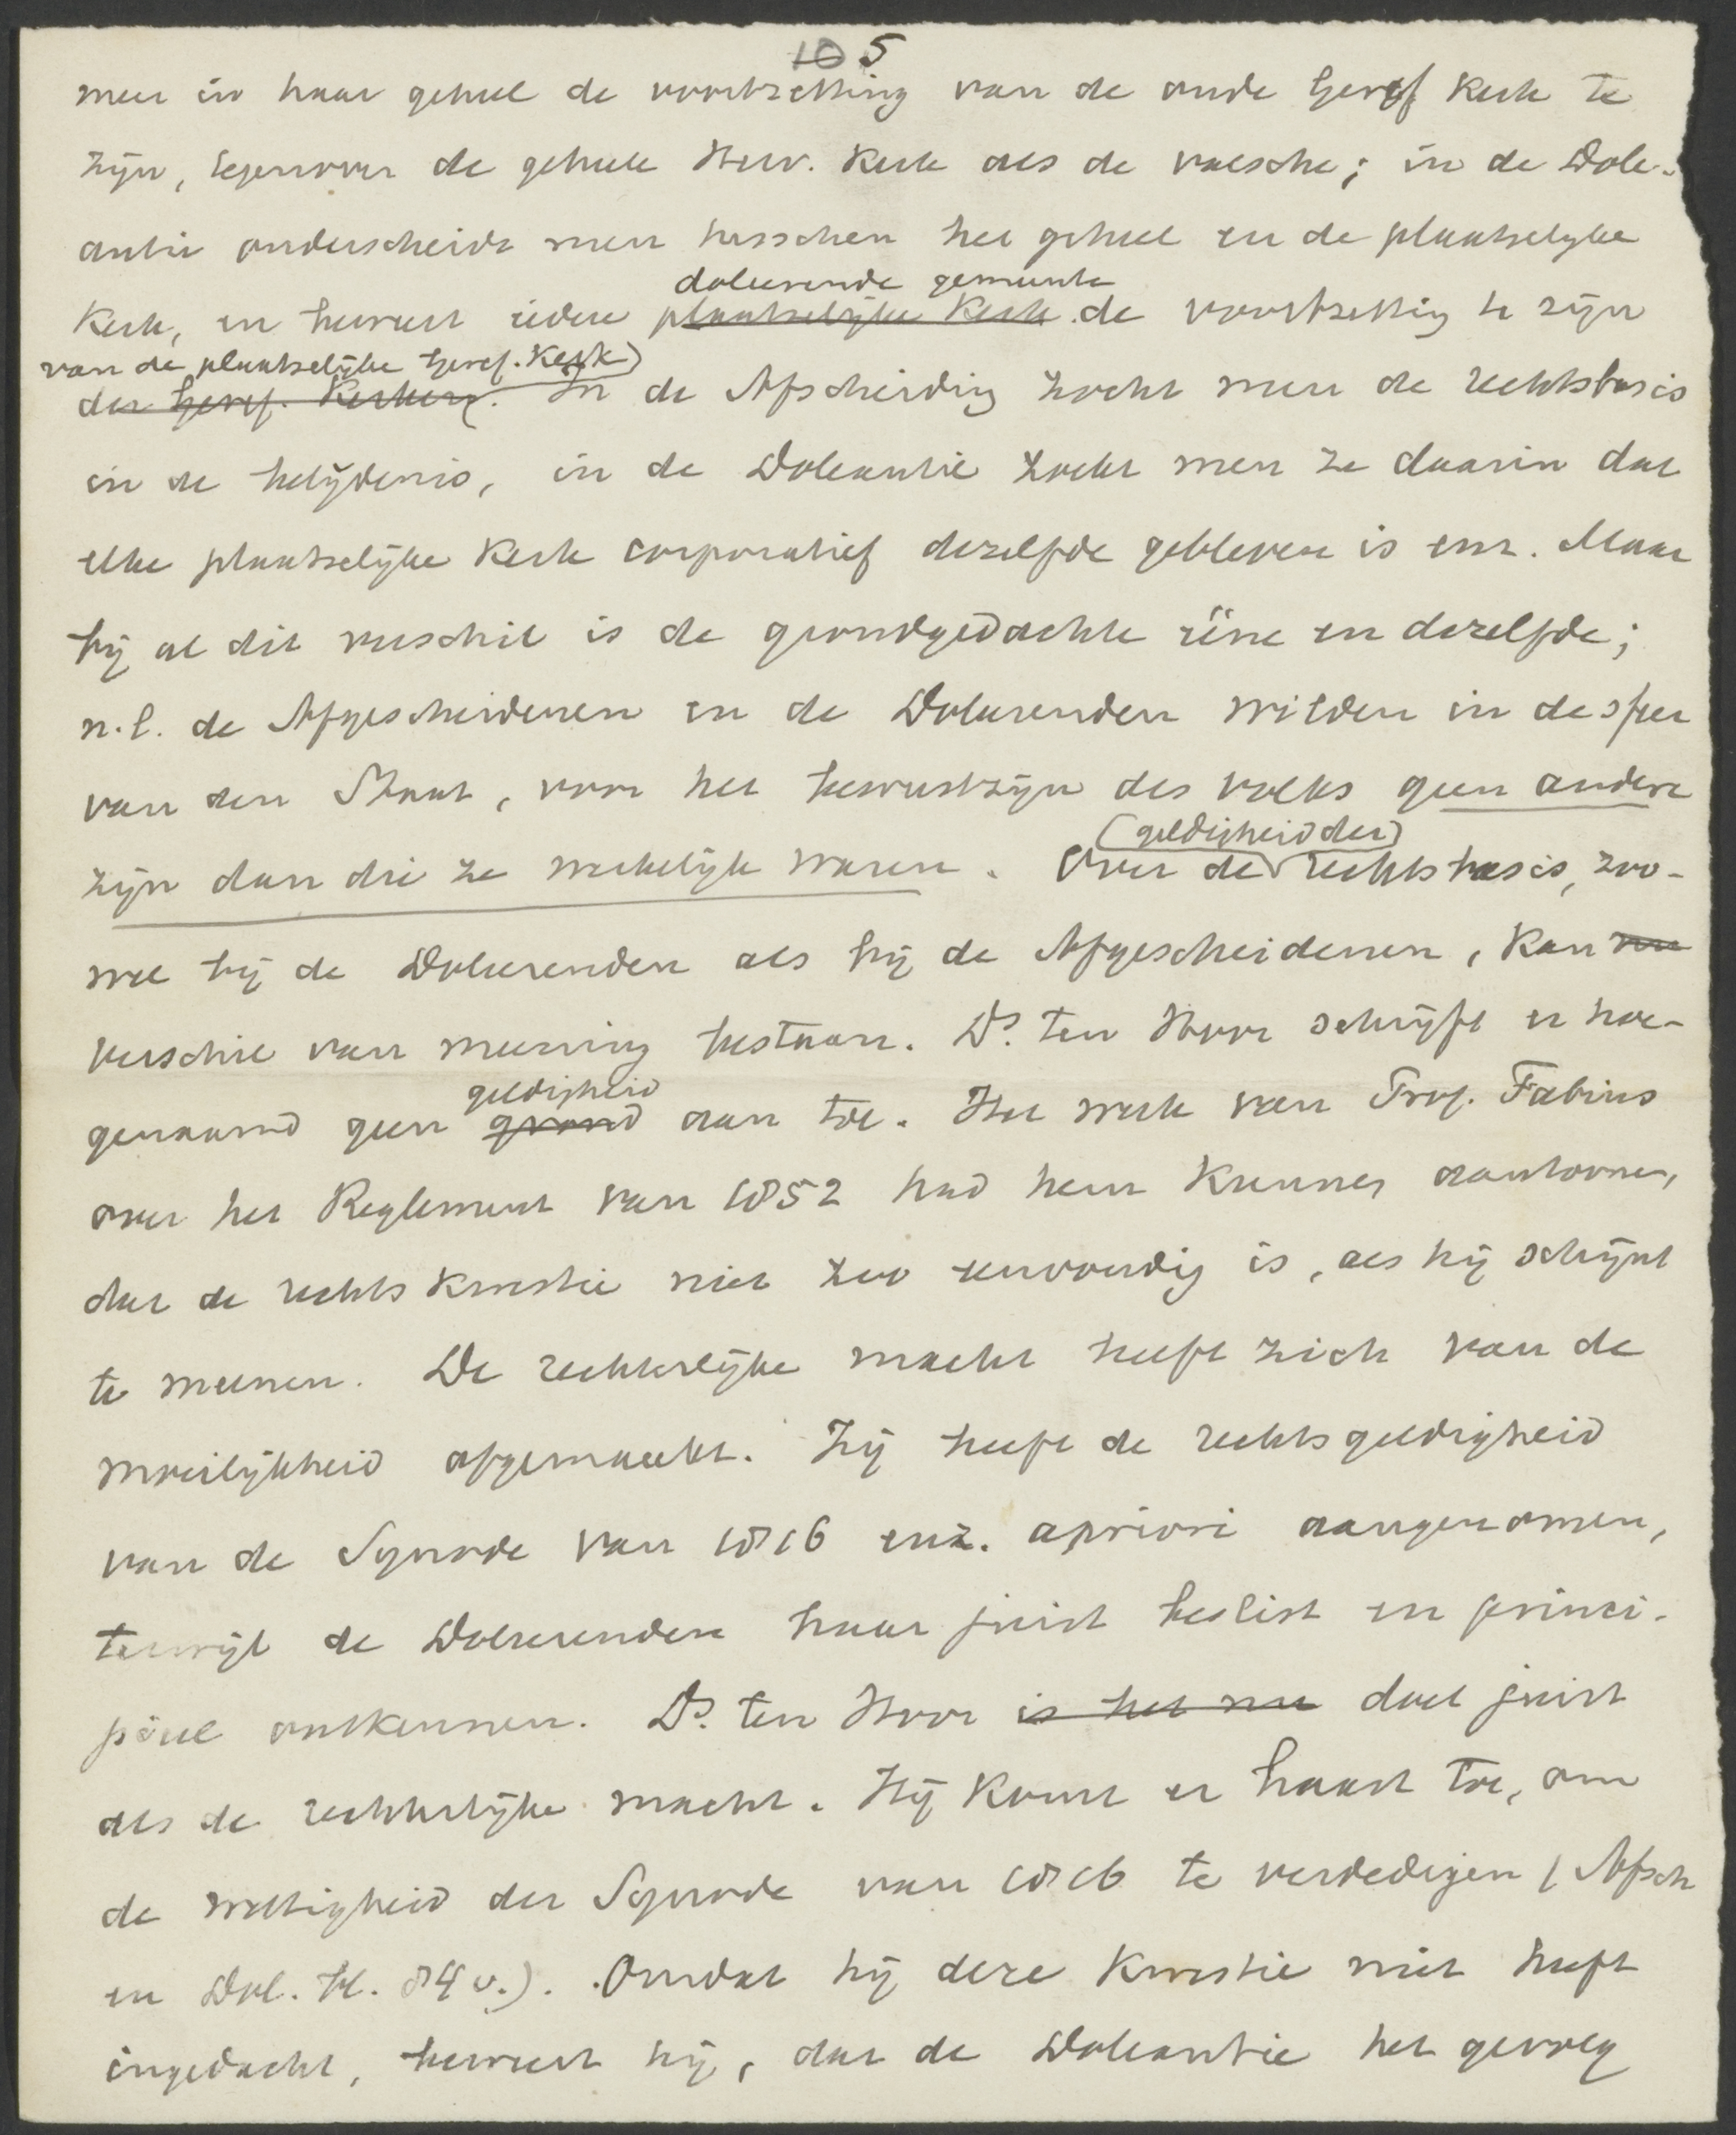 10 5
men in haar geheel de voortzetting van de oude Geref Kerk te
zijn, tegenover de geheele Herv. Kerk als de valsche; in de Dole-
antie onderscheidt men tusschen het geheel en de plaatselijke
doleerende gemeente
Kerk, en beweert iedere plaatselijke Kerk de voortzetting te zijn
van de plaatselijke Geref. Kerk)
der Geref. Kerken. In de Afscheiding zocht men de rechtsbasis
in de belijdenis, in de Doleantie zocht men ze daarin dat
elke plaatselijke Kerk corporatief dezelfde gebleven is enz. Maar
bij al dit verschil is de grondgedachte ééne en dezelfde;
n.l. de Afgescheidenen en de Doleerenden wilden in de sfeer
van den Staat, voor het bewustzijn des volks geen andere
(geldigheid der)
zijn dan die ze werkelijk waren. Over de rechtsbasis, zoo-
wel bij de Doleerenden als bij de Afgescheidenen, kan nu
verschil van meening bestaan. Ds. ten Hoor schrijft er hoe-
geldigheid
genaamd geen grond aan toe. Het werk van Prof. Fabius
over het Reglement van 1852 had hem kunnen aantoonen,
dat de rechtskwestie niet zoo eenvoudig is, als hij schijnt
te meenen. De rechterlijke macht heeft zich van de
moeilijkheid afgemaakt. Zij heeft de rechtsgeldigheid
van de Synode van 1816 enz. apriori aangenomen,
terwijl de Doleerenden haar juist beslist en princi-
piëel ontkennen. Ds. ten Hoor is het nu doet juist
als de rechterlijke macht. Hij komt er haast toe, om
de wettigheid der Synode van 1816 te verdedigen (Afsch
en Dol. bl. 84 v.). Omdat hij deze kwestie niet heeft
ingedacht, beweert hij, dat de Doleantie het gevolg